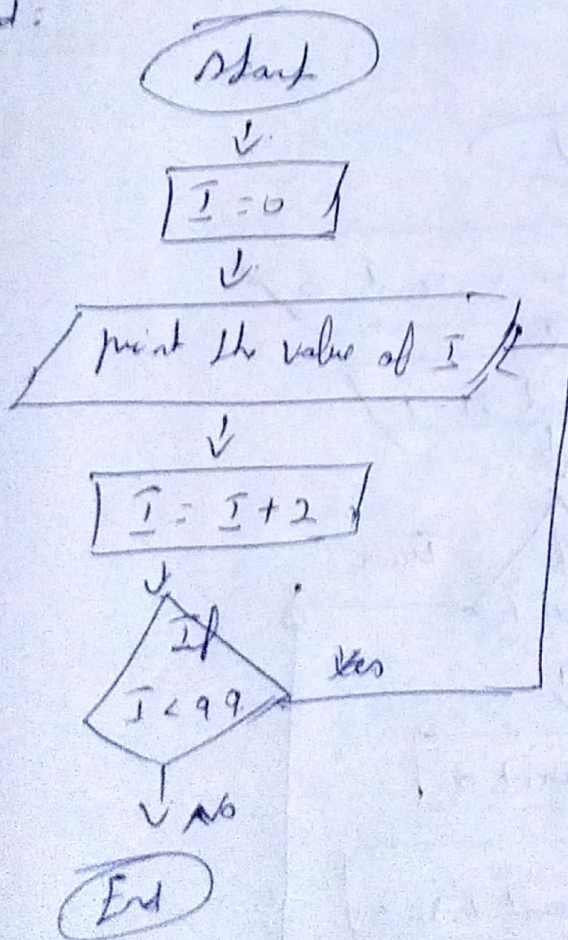 d:
Start
I = 0
print the value of I
I = I + 2
If
I < 99
Yes
No
End